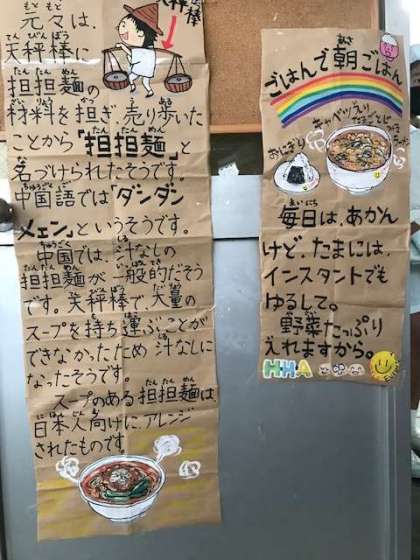 天秤棒
元々は、
天秤棒に
担担麺の
材料を担ぎ、売り歩いた
ことから「担担麺」と
名づけられたそうです。
中国語では「ダンダン
メェン」というそうです。
中国では、汁なしの
担担麺が一般的だそう
です。天秤棒で、大量の
スープを持ち運ぶことが
できなかったため 汁なしに
なったそうです。
スープのある担担麺は
日本人向けに、アレンジ
されたものです。
ごはんで朝ごはん
おにぎり
毎日は、あかん
けど、たまには、
インスタントでも
ゆるして。
野菜たっぷり
入れますから。
HHA